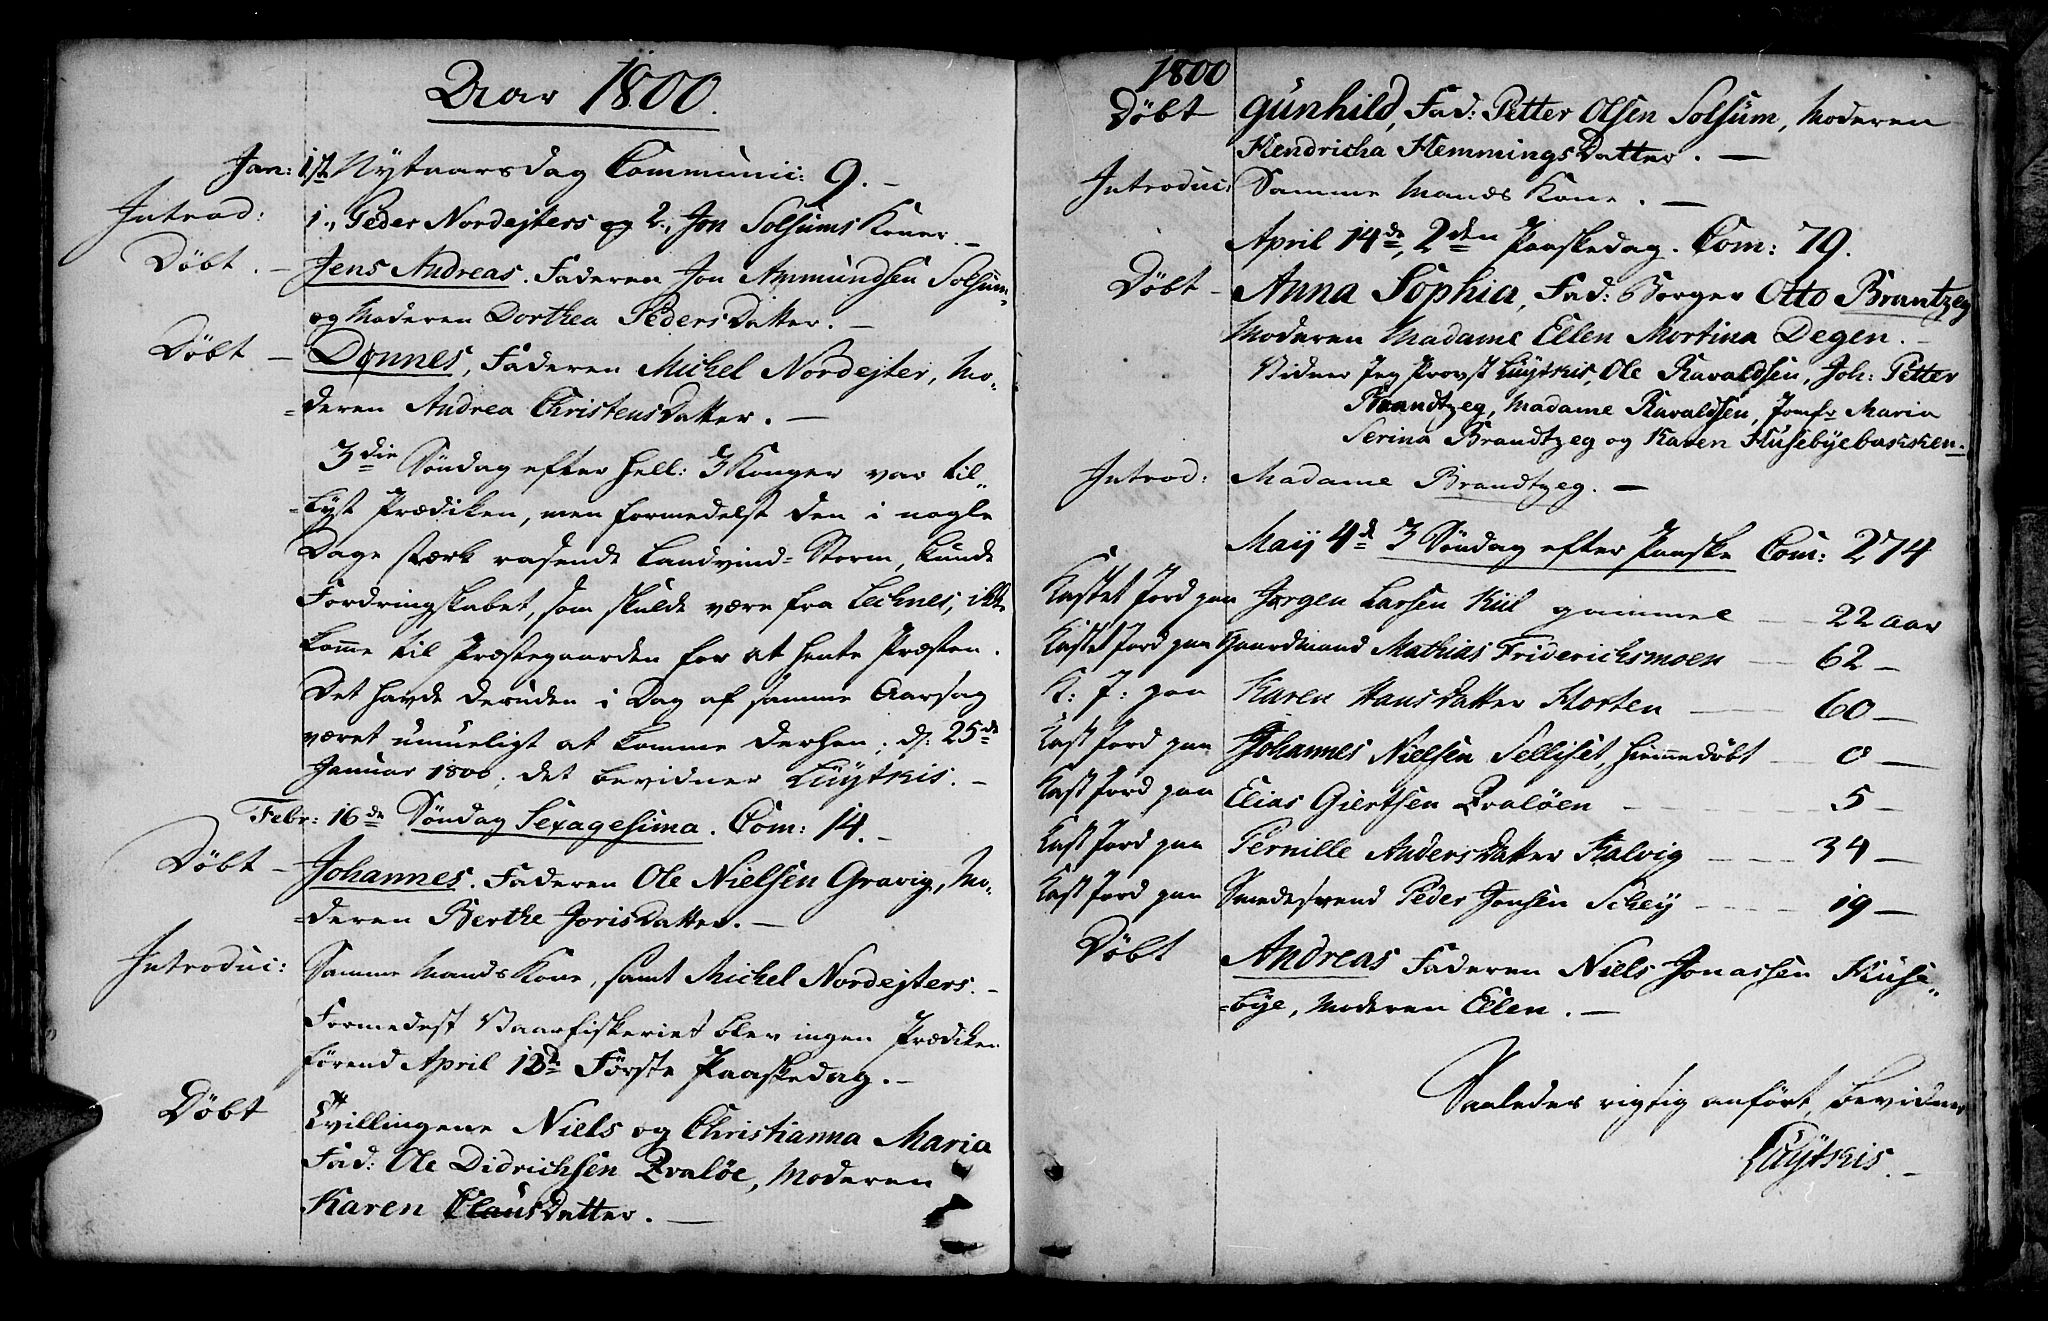 Aar 1800.
Jan: 1ste Nytaarsdag Communic: 9. -
Introd: 1., Peder Nordejters og 2., Jon Solsums Koner. -
Døbt. - Jens Andreas. Faderen Jon Ammundsen Solsum-
og Moderen Dorthea PedersDatter. -
Døbt - Dønnes, Faderen Michel Nordejter, Mo-
-deren Andrea ChristensDatter. -
3die Søndag efter Hell: 3 Konger var til-
-lyst Prædiken, men formedelst den i nogle
Dage stærk rasende Landvind-Storm, kunde
Fordringskabet, som skulde være fra Lechnes, ikke
komme til Præstegaarden for at hente Præsten.
Det havde desuden i Dag af samme Aarsag
været umueligt at komme derhen; d: 25de
Januar 1800; det bevidner Luytkis. -
Febr: 16de Søndag Sexagesima. Com: 14. -
Døbt - Johannes. Faderen Ole Nielsen Gravig, Mo-
-deren Berthe JorisDatter. -
Introduc: Samme Mands Kone, samt Michel Nordejters. -
Formedelst Vaarfiskeriet blev ingen Prædiken
førend April 13de Første Paaskedag. -
Døbt Tvillingene Niels og Christianna Maria
Fad: Ole Didrichsen Qvaløe, Moderen
Karen ClausDatter. -
1800
Døbt Gunhild, Fad: Petter Olsen Solsum, Moderen
Hendricha HemmingsDatter. -
Introduc: Samme Mands Kone. -
April 14de, 2den Paaskedag. Com: 79.
Døbt - Anna Sophia, Fad: Borger Otto Brantzeg
Moderen Madame Ellen Mortina Degen. -
Vidner Jeg Provst Luytkis, Ole Ravaldsen, Joh: Petter
Brandtzeg, Madame Ravaldsen, Jomfr Maria
Serina Brandtzeg og Karen Husebyebakken.
Introd: Madame Brandtzeg. -
Maij 4de 3 Søndag efter Paaske Com: 274
Kastet Jord paa Jørgen Larsen Kiil gammel - 22 aar
Kastet Jord paa Gaardmand Mathias Friderichsmoen - 62 -
K: J: paa Karen HansDatter Horten - 60 -
Kast Jord paa Johannes NielsenSelliset, hiemmedøbt - 0 -
Kast Jord paa Elias Giertsen Qvaløen - 5 -
Kast Jord paa Pernille AndersDatter Kalvig - 34 -
Kast Jord paa Smedesvend Peder Jonsen Schey - 19 -
Døbt Andreas Faderen Niels Jonassen Huse-
-bye, Moderen Ellen. -
Saaledes rigtig anført, bevidner
Luytkis. -